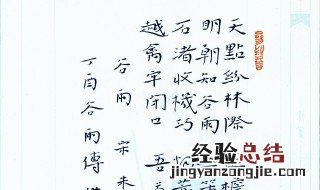 天點紛林際
明朝知谷雨
石渚收機巧
越禽牢閉口 吾
谷雨 宋 朱
丁酉谷雨傅
经验总结